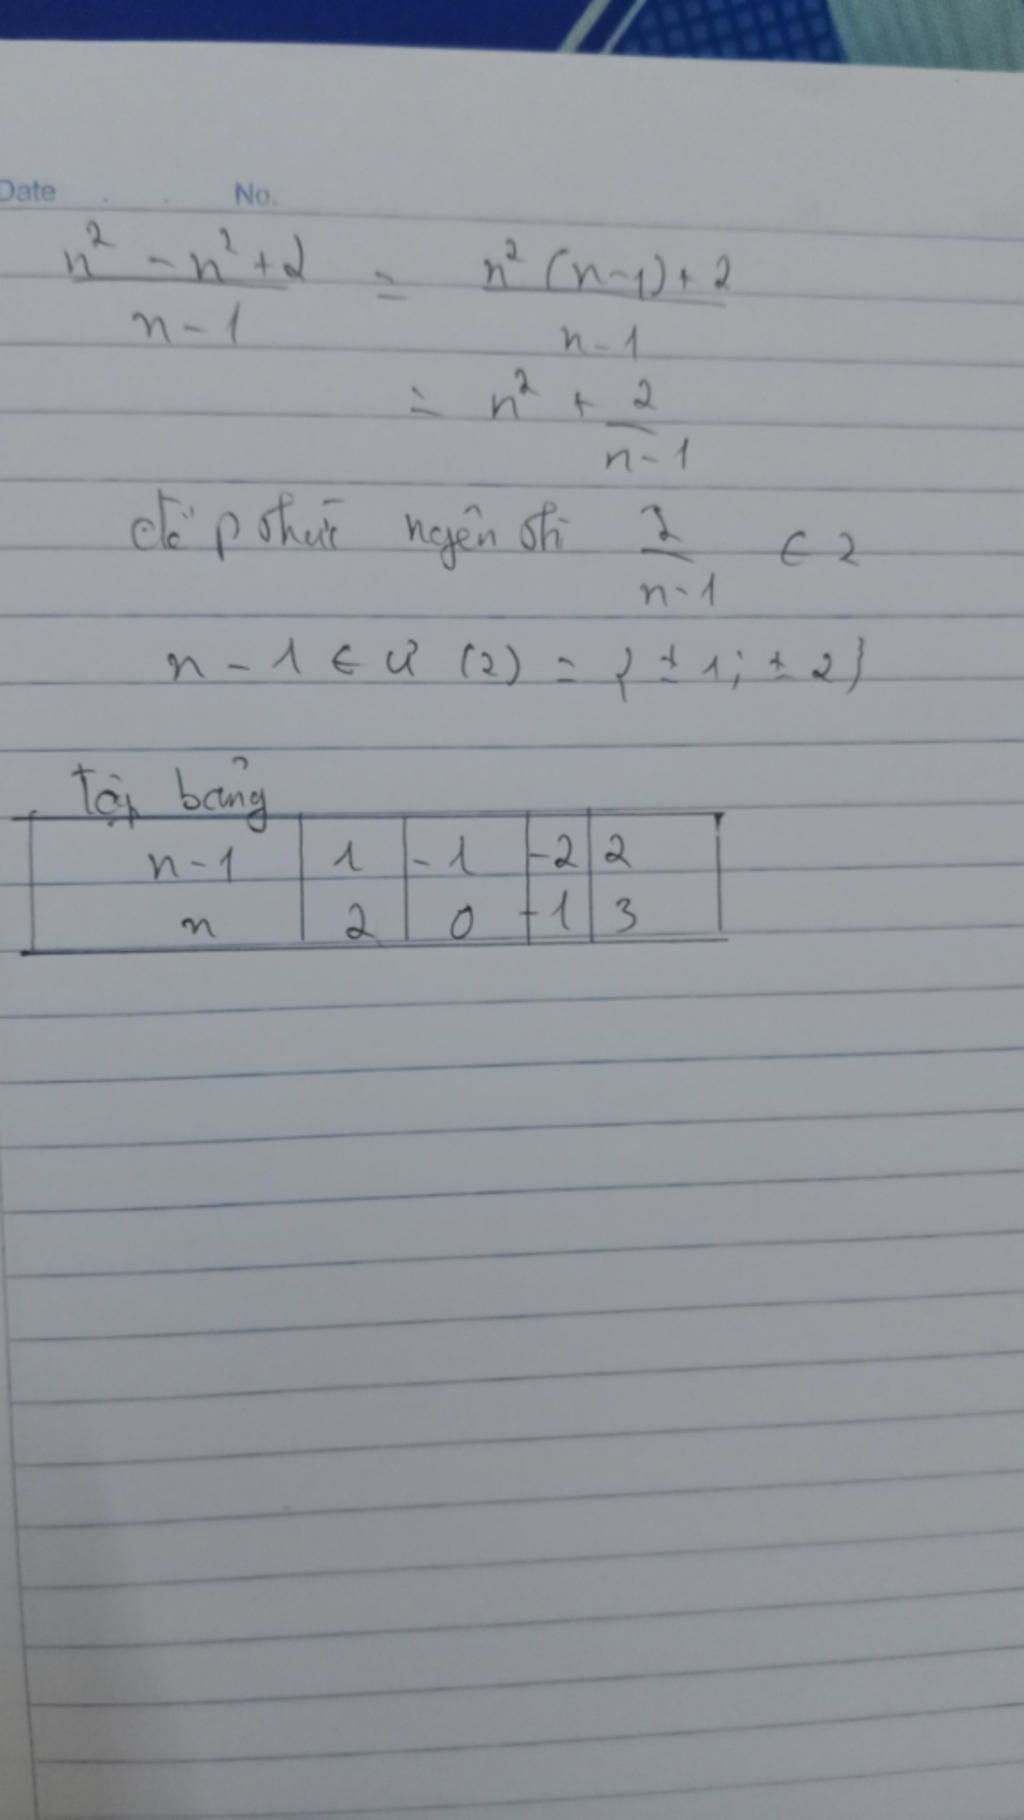 Date . . No.
n² - n² + 2 / n - 1 = n² (n - 1) + 2 / n - 1
= n² + 2 / n - 1
để p thức ngên thì 2 / n - 1 ∈ 2
n - 1 ∈ Ư (2) = { ± 1; ± 2 }
Lập bảng
n - 1 | 1 | - 1 | -2 | 2
n | 2 | 0 | -1 | 3